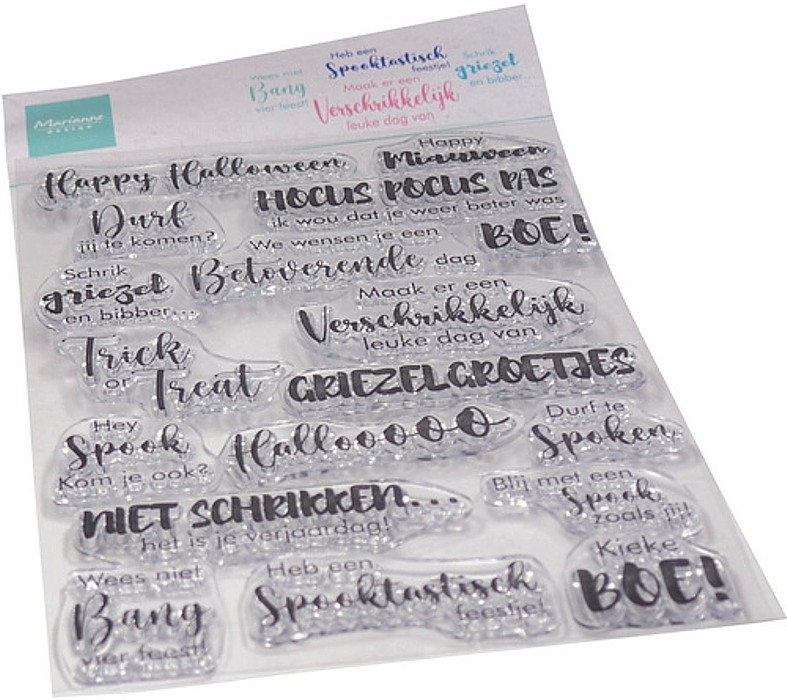 Wees niet
Bang
vier feest!
Heb een
Spooktastisch
feestje!
Maak er een
Verschrikkelijk
leuke dag van
Schrik
griezel
en bibber...
Marianne
DESIGN
Happy Halloween
Happy
Miauween
HOCUS POCUS PAS
ik wou dat je weer beter was
Durf
jij te komen?
We wensen je een
Betoverende dag
BOE!
Schrik
griezel
en bibber...
Maak er een
Verschrikkelijk
leuke dag van
Trick
or Treat
GRIEZELGROETJES
Hey
Spook
Kom je ook?
Hallooooo
Durf te
Spoken
NIET SCHRIKKEN...
het is je verjaardag!
Blij met een
Spook
zoals jij!
Wees niet
Bang
vier feest!
Heb een
Spooktastisch
feestje!
Kieke
BOE!